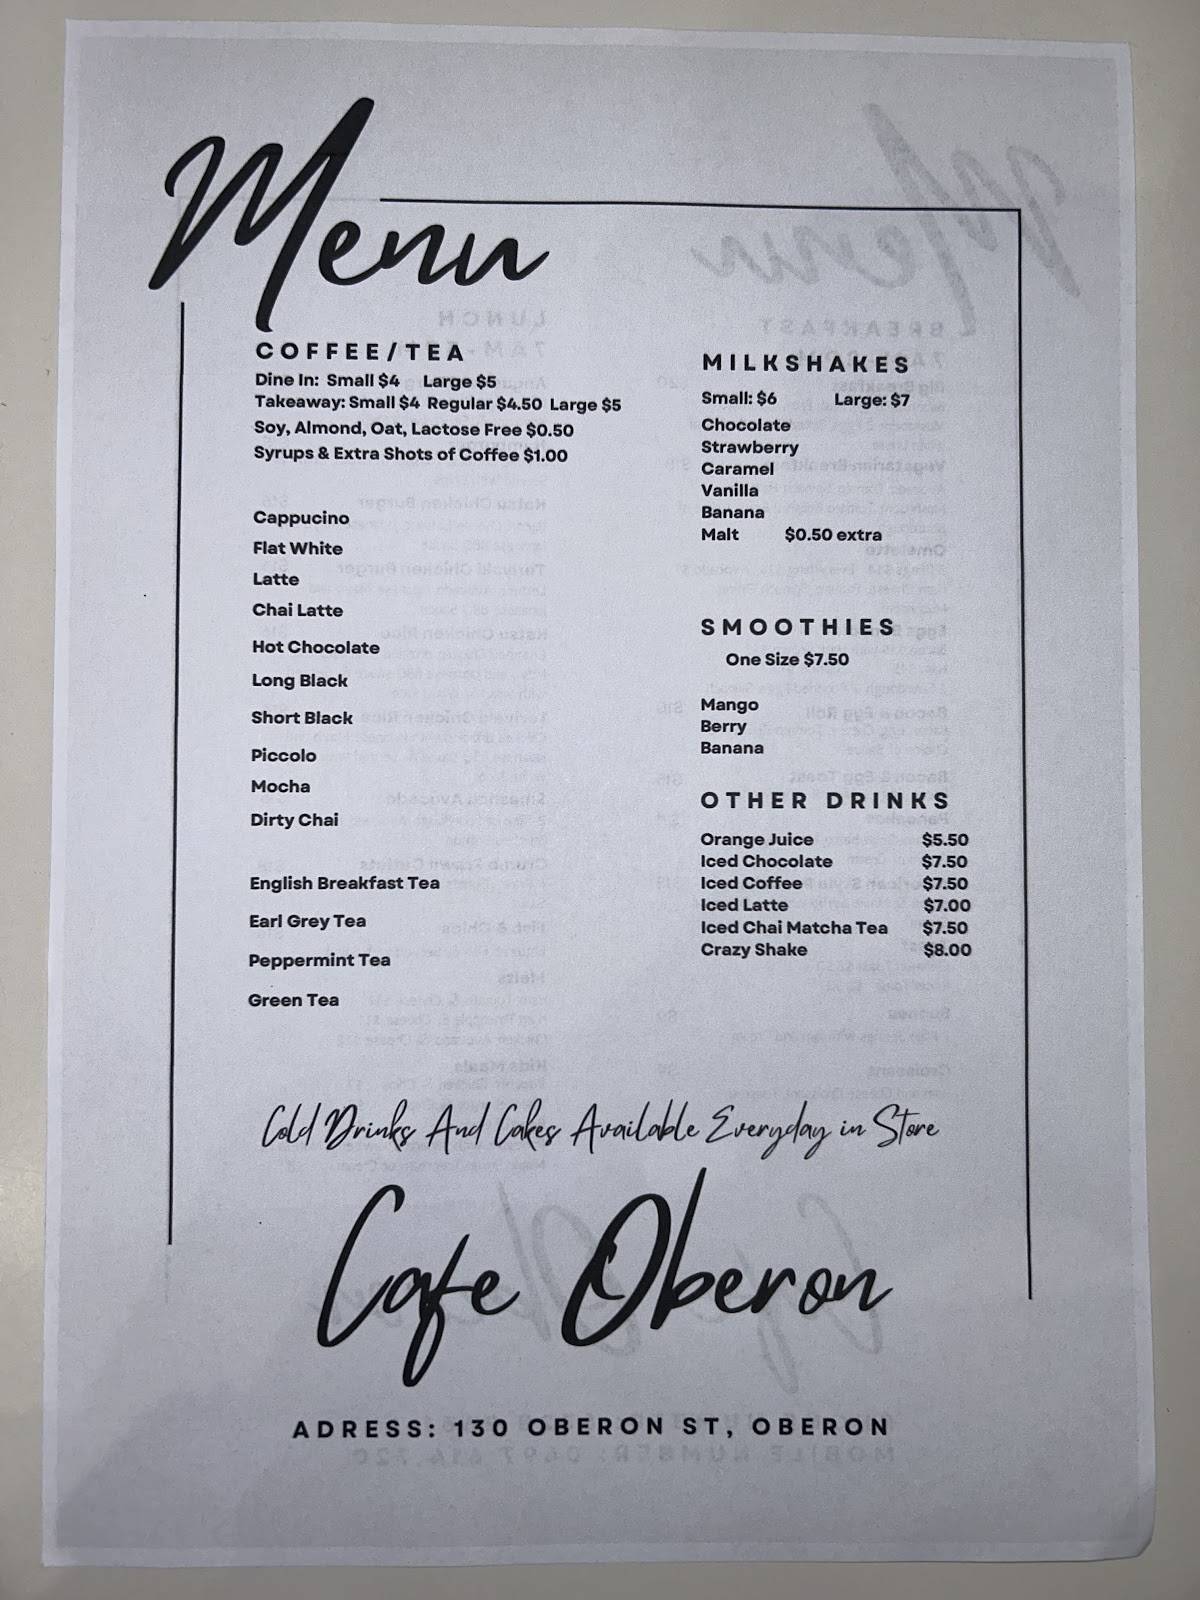 Menu
COFFEE/TEA
Dine In: Small $4 Large $5
Takeaway: Small $4 Regular $4.50 Large $5
Soy, Almond, Oat, Lactose Free $0.50
Syrups & Extra Shots of Coffee $1.00
Cappucino
Flat White
Latte
Chai Latte
Hot Chocolate
Long Black
Short Black
Piccolo
Mocha
Dirty Chai
English Breakfast Tea
Earl Grey Tea
Peppermint Tea
Green Tea
MILKSHAKES
Small: $6 Large: $7
Chocolate
Strawberry
Caramel
Vanilla
Banana
Malt $0.50 extra
SMOOTHIES
One Size $7.50
Mango
Berry
Banana
OTHER DRINKS
Orange Juice $5.50
Iced Chocolate $7.50
Iced Coffee $7.50
Iced Latte $7.00
Iced Chai Matcha Tea $7.50
Crazy Shake $8.00
Cold Drinks And Cakes Available Everyday in Store
Cafe Oberon
ADRESS: 130 OBERON ST, OBERON